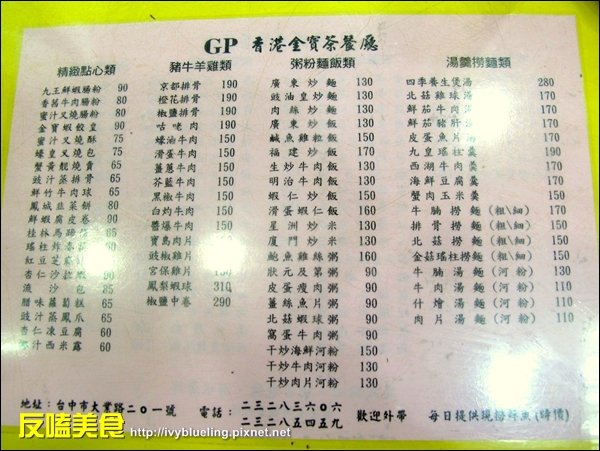 GP 香港金寶茶餐廳
精緻點心類
九王鮮蝦腸粉 90
香茜牛肉腸粉 80
蜜汁叉燒腸粉 80
金寶蝦餃皇 90
蜜汁叉燒酥 75
蠔皇叉燒包 75
蟹黃靚燒賣 65
豉汁蒸排骨 65
鮮竹牛肉球 65
鳳城韭菜餅 80
鮮蝦腐皮卷 90
桂林馬蹄
瑤柱炸春
紅豆芝麻
杏仁沙拉蝦
流沙包 65
腊味蘿蔔糕 65
豉汁蒸鳳爪 65
杏仁凍豆腐 60
汁西米露 60
豬牛羊雞類
京都排骨 190
橙花排骨 190
椒鹽排骨 190
咕咾肉 190
蠔油牛肉 150
滑蛋牛肉 150
薑蔥牛肉 150
芥藍牛肉 150
黑椒牛肉 150
白灼牛肉 150
醬爆牛肉 150
寶島肉片
豉椒雞片
宮保雞片
鳳梨蝦球 310
椒鹽中卷 290
粥粉麵飯類
廣東炒麵 130
豉油皇炒麵 130
肉絲炒麵 130
廣東炒飯 130
鹹魚雞粒飯 150
福建炒飯 170
生炒牛肉飯 130
明治牛肉飯 130
蝦仁炒飯 150
滑蛋蝦仁飯 160
星洲炒米 130
廈門炒米 130
鮑魚雞絲粥 160
狀元及第粥 90
皮蛋瘦肉粥 90
薑絲魚片粥 90
北菇蝦球粥 160
窩蛋牛肉粥 90
干炒海鮮河粉 150
干炒牛肉河粉 130
湯羹撈麵類
四季養生煲湯 280
北菇雞球湯 170
鮮茄牛肉湯 170
鮮茄豬肝湯 170
皮蛋魚片湯 170
九皇瑤柱羹 170
西湖牛肉羹 150
海鮮豆腐羹 170
蟹肉玉米羹 150
牛腩撈麵(粗\細) 170
排骨撈麵(粗\細) 150
北菇撈麵(粗\細) 150
金菇瑤柱撈麵(粗\細) 150
牛腩湯麵(河粉) 130
牛肉湯麵(河粉) 110
什燴湯麵(河粉) 110
肉片湯麵(河粉) 110
地址：台中市大業路二○一號 電話：二三二八三六○六 歡迎外帶 每日提供現撈鮮魚(時價)
二三二八五四五九
反嗑美食 http://ivyblueling.pixnet.net